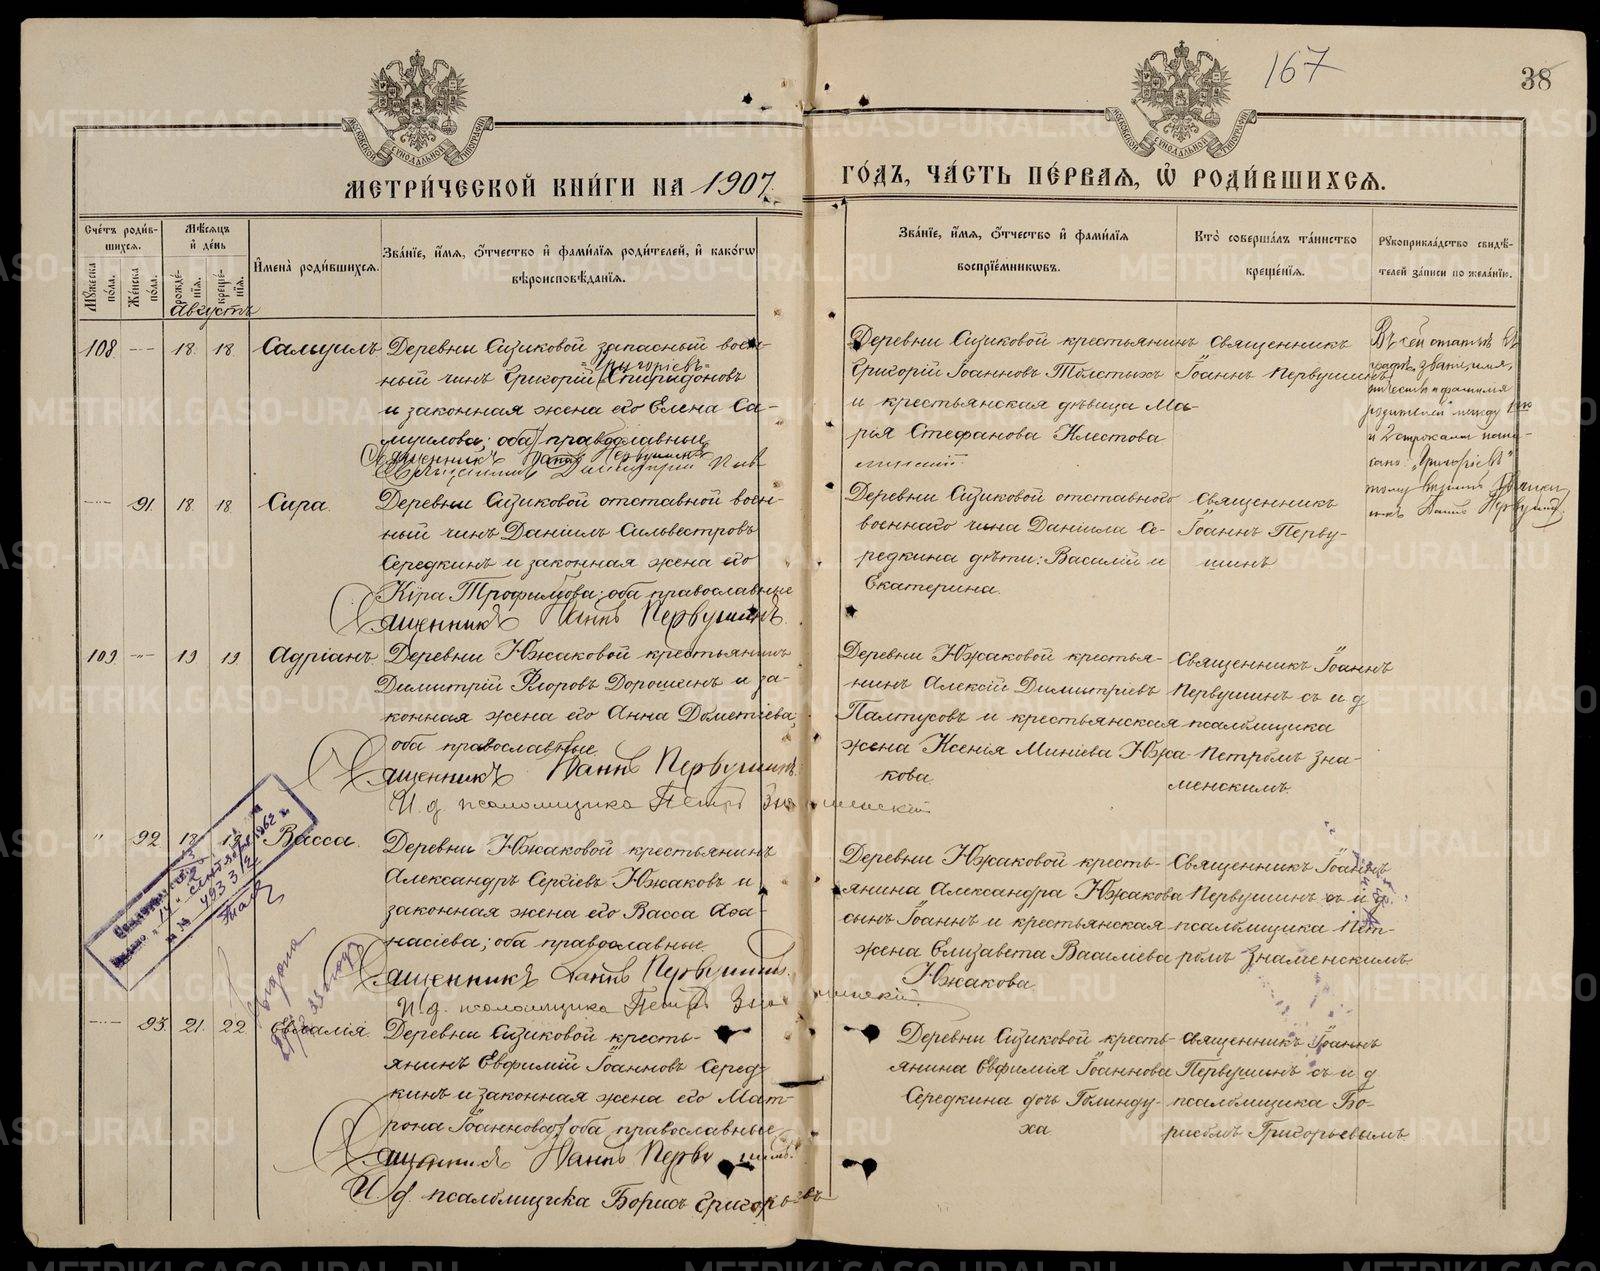 167
38
МОСКОВСКОЙ СѴНОДАЛЬНОЙ ТИПОГРАФІИ
МОСКОВСКОЙ СѴНОДАЛЬНОЙ ТИПОГРАФІИ
МЕТРИ́ЧЕСКОЙ КНИ́ГИ НА 1907
ГО́ДЪ, ЧА́СТЬ ПЕ́РВАЯ, Ѡ РОДИ́ВШИХСЯ.
Сче́тъ роди́в-
шихся.
Мѣ́сяцъ
и҆ де́нь
Му́жеска
по́ла.
Же́нска
по́ла.
рожде́-
нїя.
креще́-
нїя.
И҆мена̀ роди́вшихся.
Зва́нїе, и҆́мя, ѻ҆́тчество и҆ фами́лїя роди́телей, и҆ како́гѡ
вѣроисповѣ́данїя.
Зва́нїе, и҆́мя, ѻ҆́тчество и҆ фами́лїя
воспрїе́мникѡвъ.
Кто̀ соверша́лъ та́инство
креще́нїя.
Рукоприкла́дство свидѣ́-
телей за́писи по жела́нїю.
Августъ
108 18. 18. Самуилъ Деревни Сизиковой запасный воен-
Григоріевъ
ный чинъ Григорій Спиридоновъ
и законная жена его Елена Са-
муилова; оба православные
Священникъ Іоаннъ Первушинъ
Деревни Сизиковой крестьянинъ
Григорій Іоанновъ Толстыхъ
и крестьянская дѣвица Ма-
рія Стефанова Клестова
Священникъ
Іоаннъ Первушинъ
Въ сей статьѣ въ
графѣ, званіе, имя,
отчество и фамилія
родителей между 1ою
и 2 строками напи-
сано „Григоріевъ“
91. 18. 18 Сира. Деревни Сизиковой отставной воен-
ный чинъ Даніилъ Сильвестровъ
Середкинъ и законная жена его
Кира Трофимова; оба православные
Священникъ Іоаннъ Первушинъ.
Деревни Сизиковой отставного
военнаго чина Даніила Се-
редкина дѣти: Василій и
Екатерина.
Священникъ
Іоаннъ Перву-
шинъ
109 19 19. Адріанъ. Деревни Южаковой крестьянинъ
Димитрій Флоровъ Дорошинъ и за-
конная жена его Анна Дометіева,
оба православные
Священникъ Іоаннъ Первушинъ.
И. д. псаломщика Петръ Знаменскій.
Деревни Южаковой крестья-
нинъ Алексій Димитріевъ
Палтусовъ и крестьянская
жена Ксенія Миніева Южа-
кова.
Священникъ Іоаннъ
Первушинъ съ и д
псаломщика
Петромъ Зна-
менскимъ.
" 92. 19 Васса. Деревни Южаковой крестьянинъ
Александръ Сергіевъ Южаковъ и
законная жена его Васса Аѳа-
насіева; оба православные.
Священникъ Іоаннъ Первушинъ.
И. д. псаломщика Петръ Знаменскій.
Деревни Южаковой кресть-
янина Александра Южакова
сынъ Іоаннъ и крестьянская
жена Елизавета Василіева
Южакова.
Священникъ Іоаннъ
Первушинъ съ и д.
псаломщика Пет-
ромъ Знаменскимъ.
93. 21. 22. Евлалія. Деревни Сизиковой кресть-
янинъ Евфимій Іоанновъ Серед-
кинъ и законная жена его Мат-
рона Іоаннова; оба православные
Священникъ Іоаннъ Первушинъ.
И. д. псаломщика Борисъ Григорьевъ
Деревни Сизиковой кресть-
янина Евфимія Іоаннова
Середкина дочь Голинду-
ха
Священникъ Іоаннъ
Первушинъ съ и д
псаломщика Бо-
рисомъ Григорьевымъ
METRIKI.GASO-URAL.RU